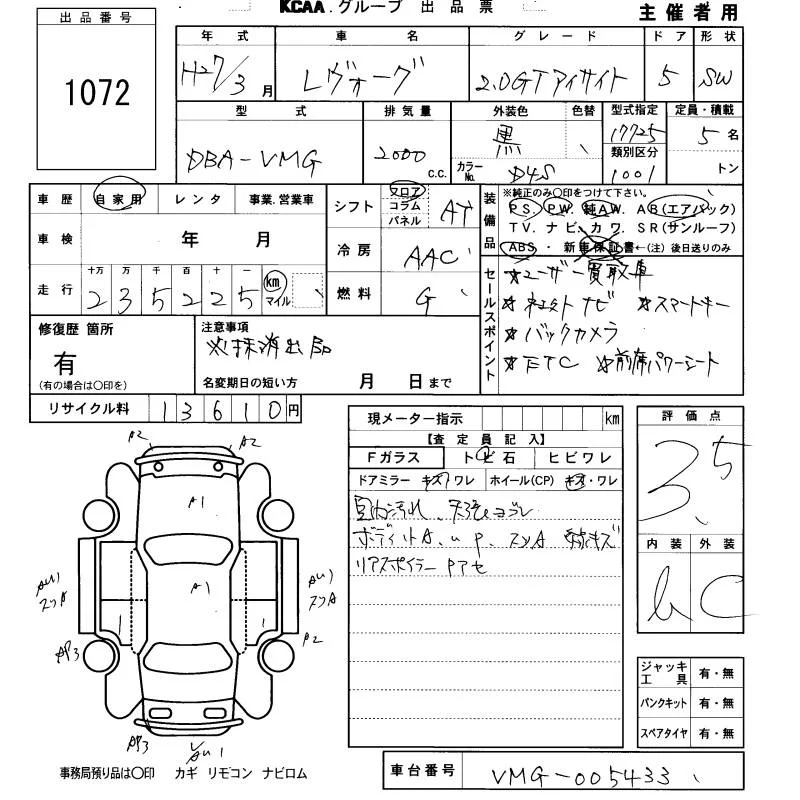 KCAA.グループ 出品票
主催者用
出品番号
1072
年式 車名 グレード ドア 形状
H27/3月 レヴォーグ 2.0GTアイサイト 5 SW
型式 排気量 外装色 色替 型式指定 定員・積載
DBA-VMG 2000 c.c. 黒 17725 5名
カラーNo. D4S 類別区分 1001 トン
車歴 自家用 レンタ 事業.営業車
シフト フロア コラム パネル AT
装備品 ※純正のみ〇印をつけて下さい。
PS. PW. 純AW. AB(エアバック)
TV. ナビ. カワ. SR(サンルーフ)
ABS・新車保証書←(注)後日送りのみ
車検 年 月
冷房 AAC
走行 十万 万 千 百 十 一
235225 km マイル
燃料 G
セールスポイント
☆ユーザー買取車
☆ネェクト ナビ ☆スマートキー
☆バックカメラ
☆ETC ☆前席パワーシート
修復歴 箇所
有
(有の場合は〇印を)
注意事項
※抹消出品
名変期日の短い方 月 日まで
リサイクル料 13610円
現メーター指示 km
【査定員記入】
Fガラス トビ石 ヒビワレ
ドアミラー キズ ワレ ホイール(CP) キズ・ワレ
室内汚れ、天張ヨゴレ
ボディ小A、u p、スリA
リアスポイラー Pアセ
評価点
3.5
内装 外装
C
ジャッキ 工具 有・無
パンクキット 有・無
スペアタイヤ 有・無
A2 A2
A1
AU1 スリA A1 AU1 スリA
AP3 P2
AP3 AU1
事務局預り品は〇印 カギ リモコン ナビロム
車台番号 VMG-005433